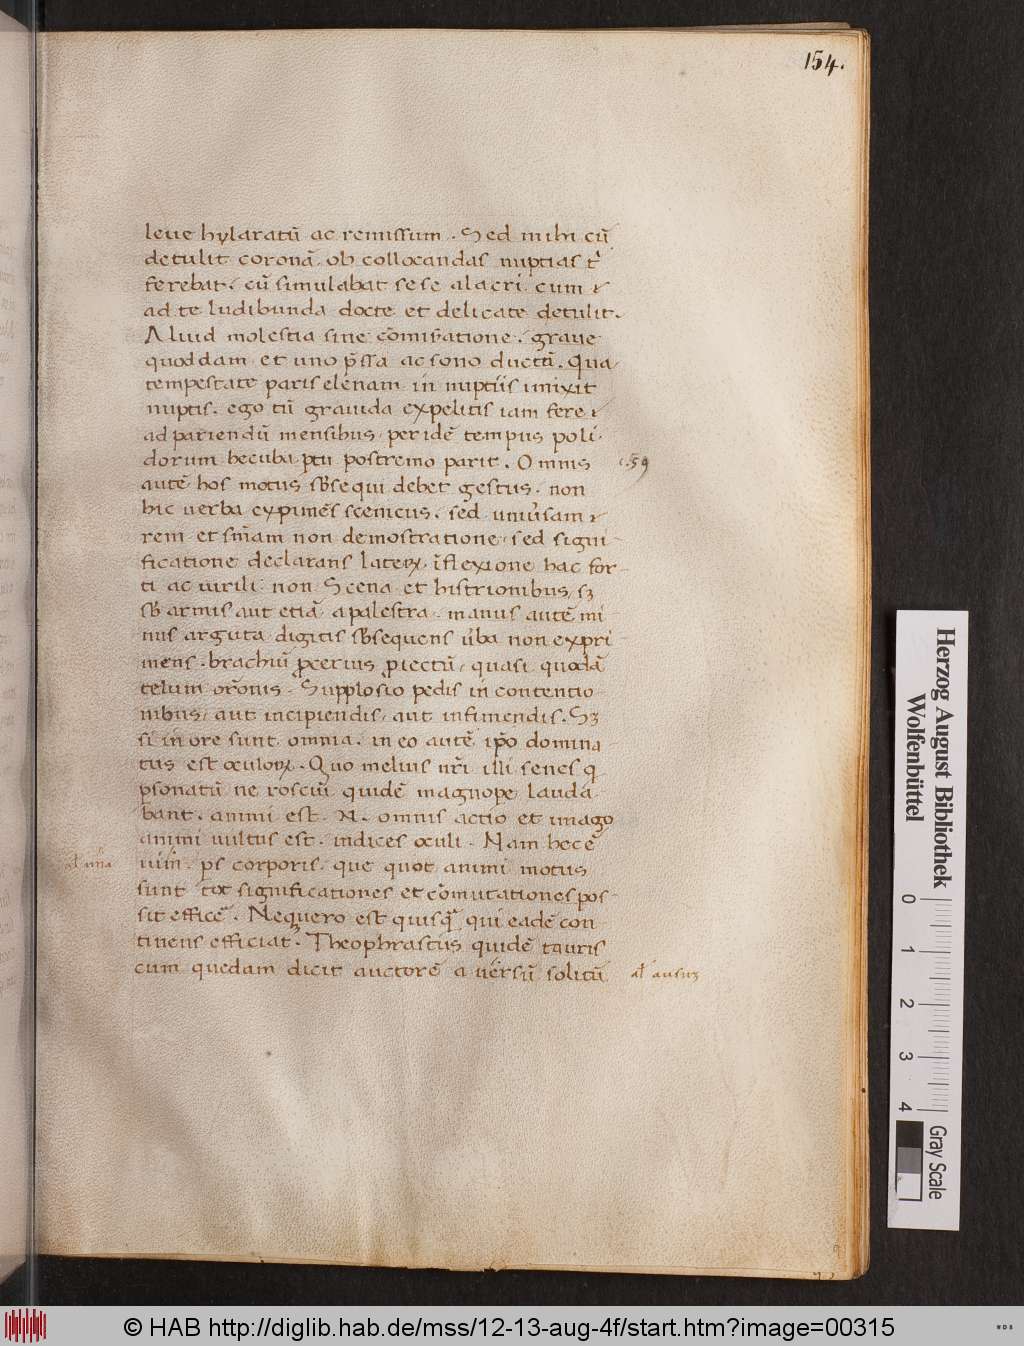 154.
leue hylaratū ac remissum. Sed mihi cū
detulit coronā. ob collocandas nuptias t͛
ferebat. cū simulabat sese alacri. cum &
ad te ludibunda docte et delicate detulit.
Aliud molestia sine cōmiratione. graue
quoddam et uno p̄ssa ac sono ductū. Qua
tempestate paris elenam in nuptiis iunixit
nuptis. ego tū grauida expelitis iam fere
ad pariendū mensibus, per idē tempus poli
dorum hecuba ptu postremo parit. Omnis
c. 59
autē hos motus sb̄sequi debet gestus. non
hic uerba expimēs scenicus. sed uniu̓sam
rem et sn̄iam non demostratione, sed signi
ficatione declarans lateꝝ. īflexione hac for
ti ac uirili. non Scena et histrionibus, sꝫ
sb̄ armis aut etiā a palestra. manus autē mi
nus arguta digitis sb̄sequens u̓ba non expri
mens. brachiū ꝓcerius ꝓiectū, quasi quodā
telum orōnis. Supplosio pedis in contentio
nibus, aut incipiendis, aut infiniendis. Sꝫ
si in ore sunt omnia. in eo autē ip̄o domina
tus est oculoꝝ. Quo melius nr̄i illi senes q
ꝑsonatū ne rosciū quidē magnope lauda
bant. animi est .N. omnis actio et imago
animi uultus est. indices oculi. Nam hec ē
al' una
una. ps corporis. que quot animi motus
sunt tot significationes et cōmutationes pos
sit efficē. Neq uero est quisq̄ qui eadē con
tinens efficiatꝫ. Theophrastus quidē tauris
cum quedam dicit auctorē auersū solitū
al' ausuꝫ
Herzog August Bibliothek
Wolfenbüttel
0 1 2 3 4
Gray Scale
© HAB http://diglib.hab.de/mss/12-13-aug-4f/start.htm?image=00315